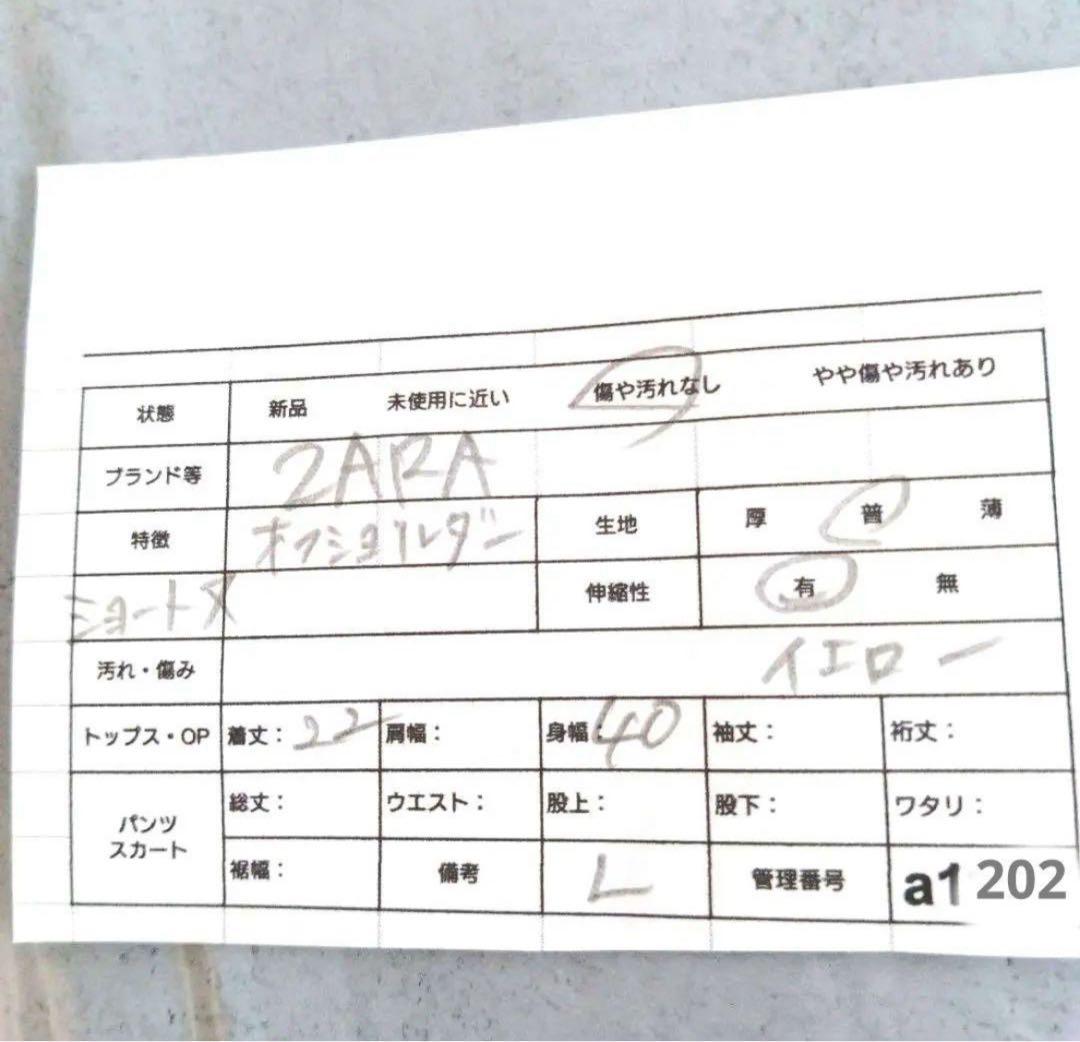 状態 新品 未使用に近い 傷や汚れなし やや傷や汚れあり
ブランド等 ZARA
特徴 オフショルダー 生地 厚 普 薄
ショート丈 伸縮性 有 無
汚れ・傷み イエロー
トップス・OP 着丈: 22 肩幅: 身幅: 40 袖丈: 裄丈:
パンツ スカート 総丈: ウエスト: 股上: 股下: ワタリ:
裾幅: 備考 L 管理番号 a1 202